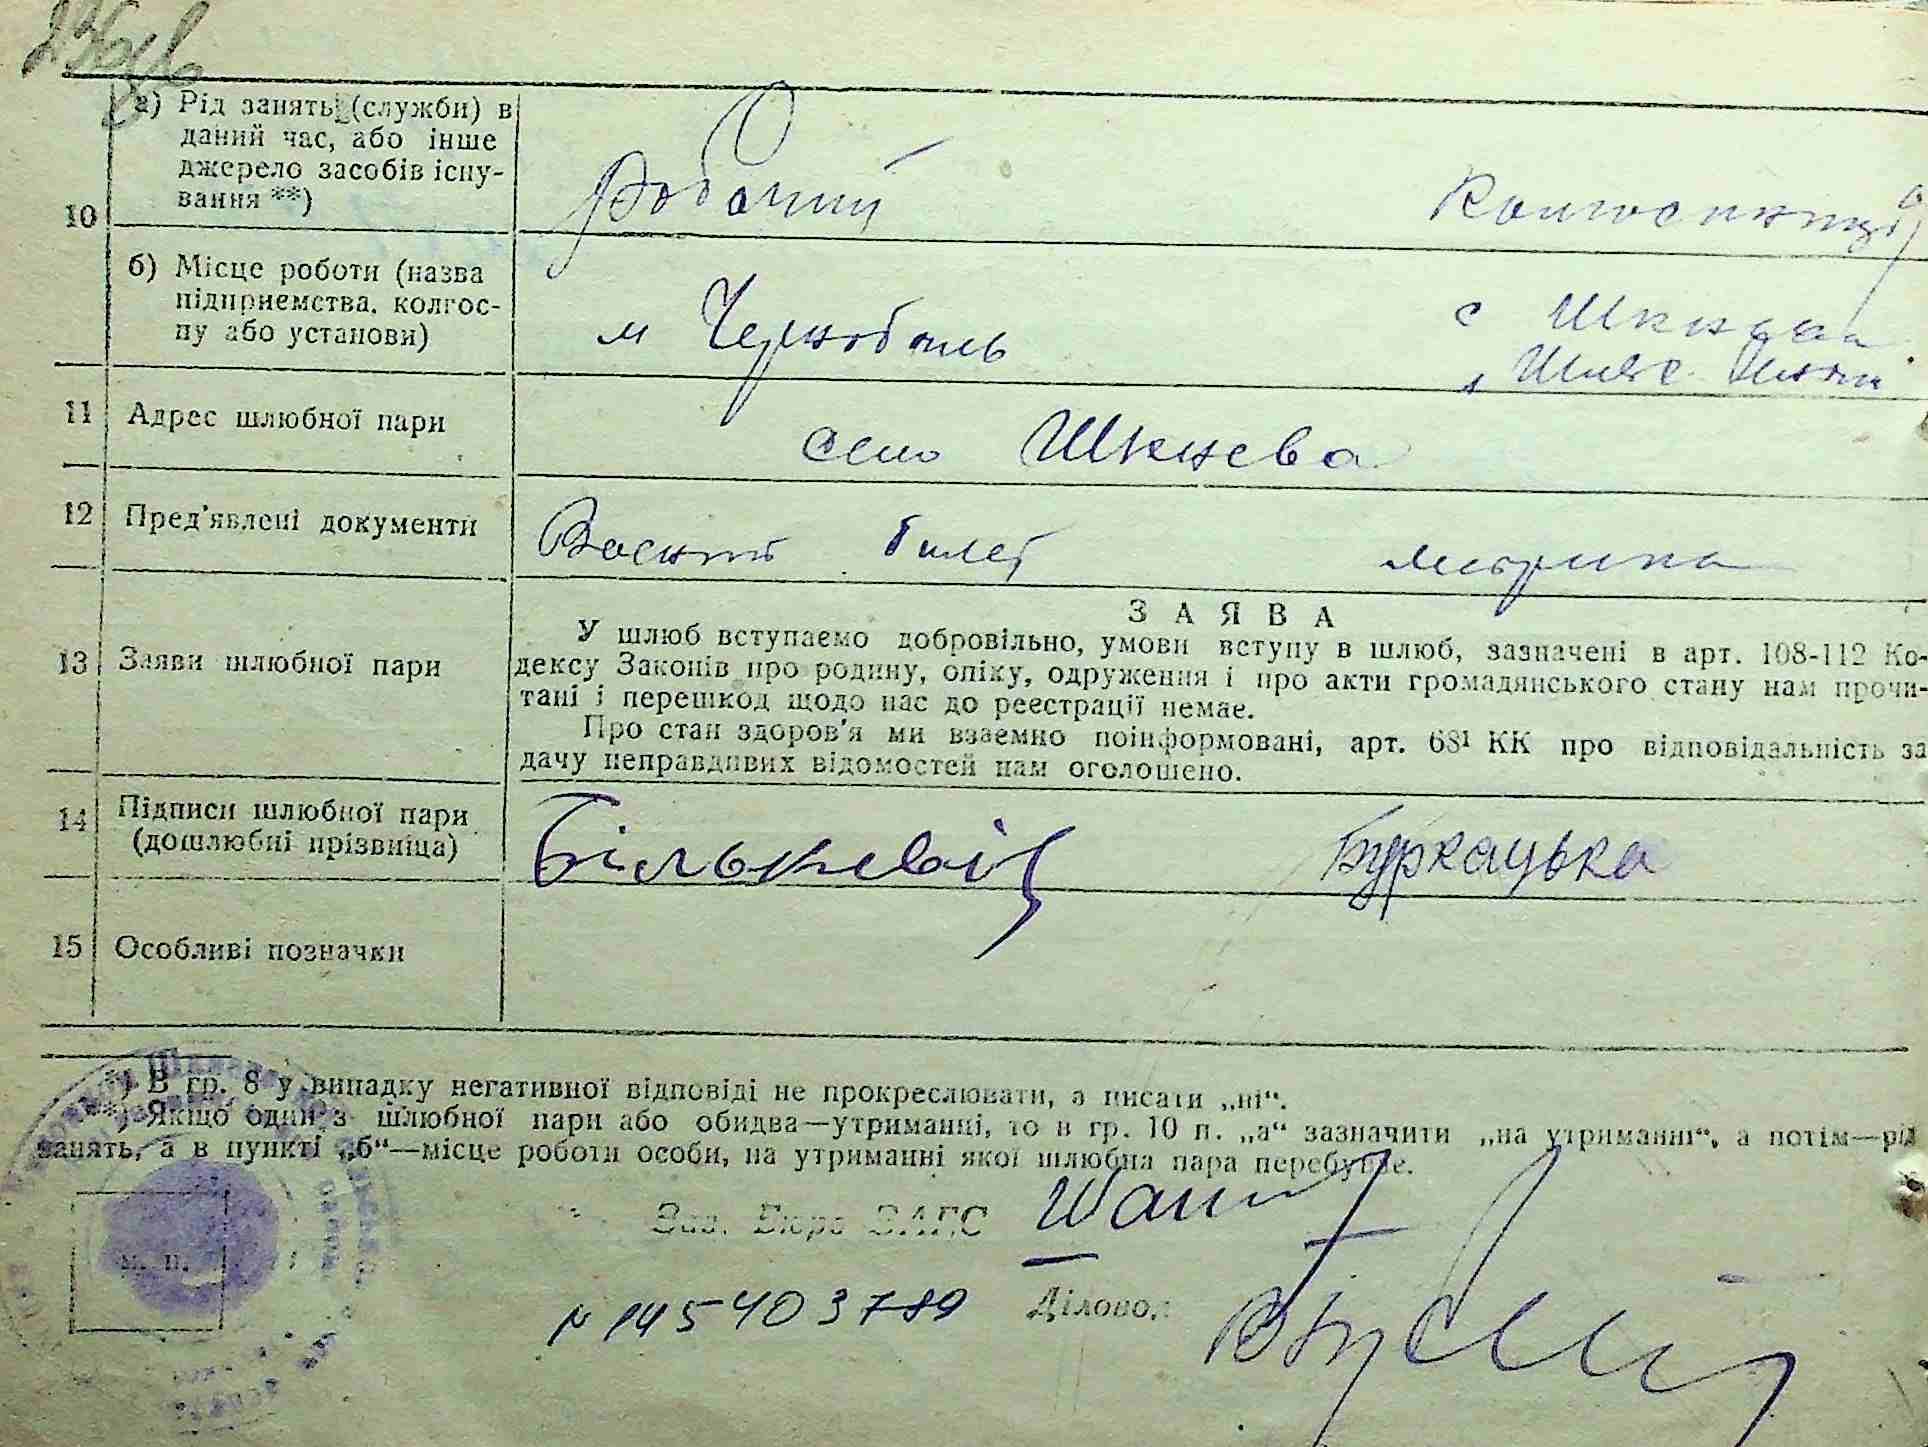 10
а) Рід занять (служби) в
даний час, або інше
джерело засобів існу-
вання **)
Робочий
Колгоспниця
б) Місце роботи (назва
підприємства, колгос-
пу або установи)
м Чернобиль
с
11
Адрес шлюбної пари
село Шкнева
12
Пред'явлені документи
билет
метрика
13
Заяви шлюбної пари
ЗАЯВА
У шлюб вступаємо добровільно, умови вступу в шлюб, зазначені в арт. 108-112 Ко-
дексу Законів про родину, опіку, одруження і про акти громадянського стану нам прочи-
тані і перешкод щодо нас до реєстрації немає.
Про стан здоров'я ми взаємно поінформовані, арт. 68¹ КК про відповідальність за
дачу неправдивих відомостей нам оголошено.
14
Підписи шлюбної пари
(дошлюбні прізвища)
Бількевіч
Буркацька
15
Особливі позначки
*) В гр. 8 у випадку негативної відповіді не прокреслювати, а писати „ні“.
**) Якщо один з шлюбної пари або обидва—утриманці, то в гр. 10 п. „а“ зазначити „на утриманні“, а потім—рід
занять, а в пункті „б“—місце роботи особи, на утриманні якої шлюбна пара перебуває.
Зав. Бюро ЗАГС
М. П.
N 145403789
Діловод